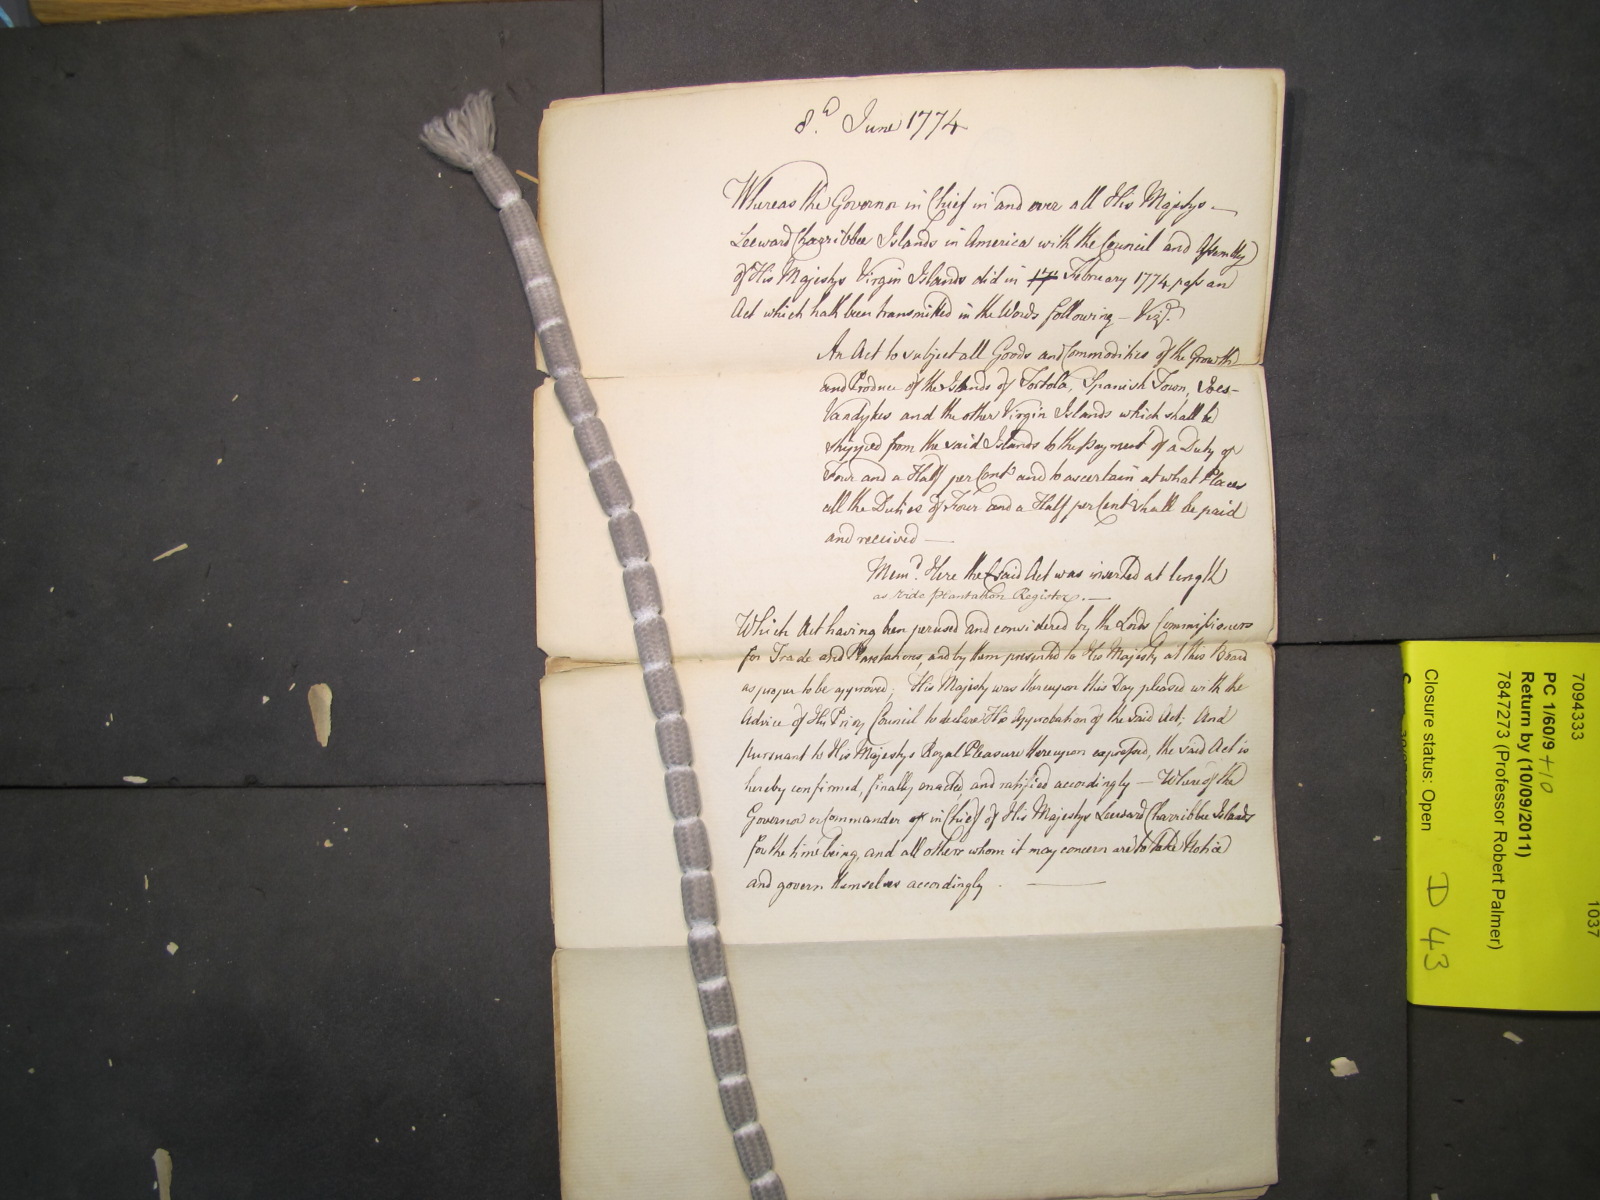 8.th June 1774
Whereas the Governor in Chief in and over all His Majestys
Leeward Charribbee Islands in America with the Council and Assembly
of His Majestys Virgin Islands did in February 1774 pass an
Act which hath been transmitted in the Words following - Vizt.
An Act to subject all Goods and Commodities of the Growth
and Produce of the Islands of Tortola, Spanish Town, Joes-
Vandykes and the other Virgin Islands which shall be
shipped from the said Islands to the Payment of a Duty of
Four and a Half per Cent and to ascertain at what Places
all the Duties of Four and a Half per Cent shall be paid
and received —
Memd. Here the said Act was inserted at length
as vide Plantation Register. —
Which Act having been perused and considered by the Lords Commissioners
for Trade and Plantations, and by them presented to His Majesty at this Board
as proper to be approved; His Majesty was thereupon this Day pleased with the
Advice of His Privy Council to declare His Approbation of the said Act; And
pursuant to His Majestys Royal Pleasure thereupon expressed, the said Act is
hereby confirmed, finally enacted, and ratified accordingly — Whereof the
Governor or Commander in Chief of His Majestys Leeward Charribbee Islands
for the time being, and all others whom it may concern are to take Notice
and govern themselves accordingly. —
7094333 1037
PC 1/60/9 +10
Return by (10/09/2011)
7847273 (Professor Robert Palmer)
Closure status: Open D 43